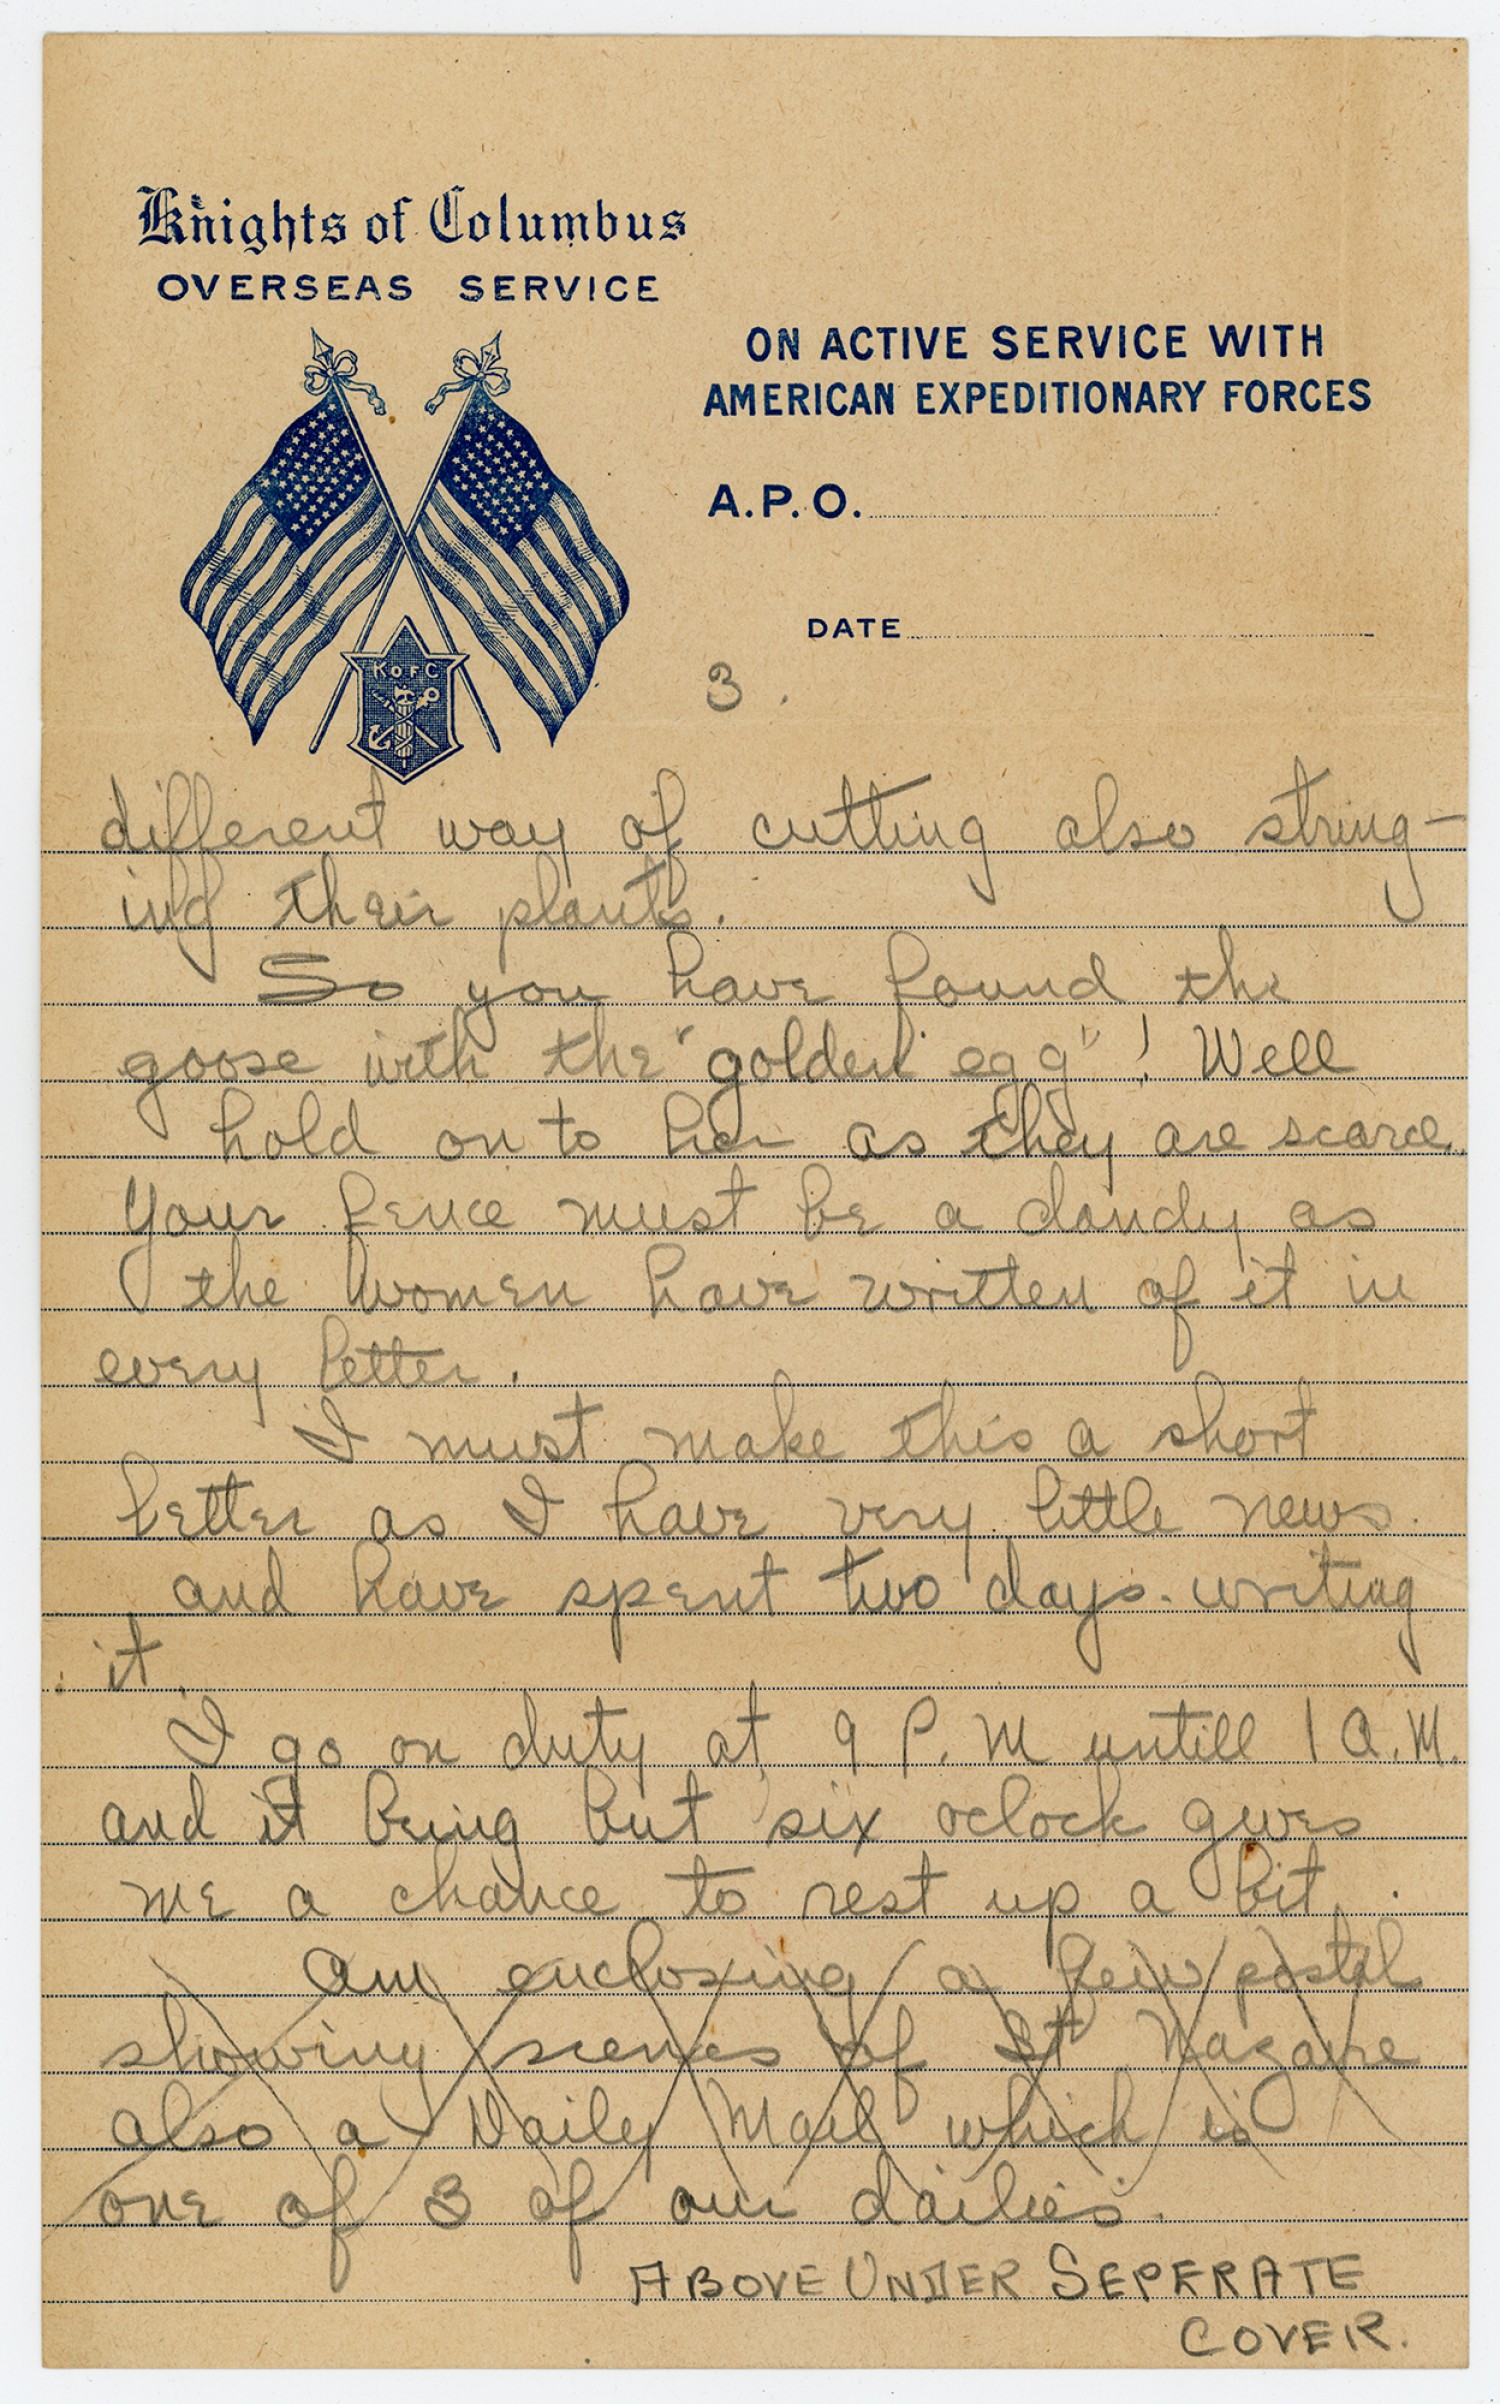 Knights of Columbus
OVERSEAS SERVICE
ON ACTIVE SERVICE WITH
AMERICAN EXPEDITIONARY FORCES
A.P.O.
DATE
K OF C
3.
different way of cutting also string-
ing their plants.
So you have found the
goose with the "golden egg"! Well
hold on to her as they are scarce.
Your fence must be a dandy as
the women have written of it in
every letter.
I must make this a short
letter as I have very little news.
and have spent two days writing
it.
I go on duty at 9 P.M untill 1 A.M.
and it being but six oclock gives
me a chance to rest up a bit.
Am enclosing a few postal
showing scenes of St Nazaire
also a Daily Mail which is
one of 3 of our dailies.
ABOVE UNDER SEPERATE
COVER.